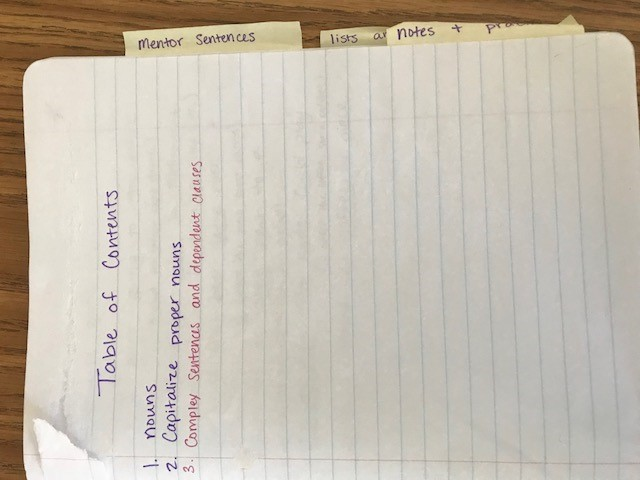 mentor sentences
lists
notes +
Table of Contents
1. nouns
2. Capitalize proper nouns
3. Complex sentences and dependent clauses